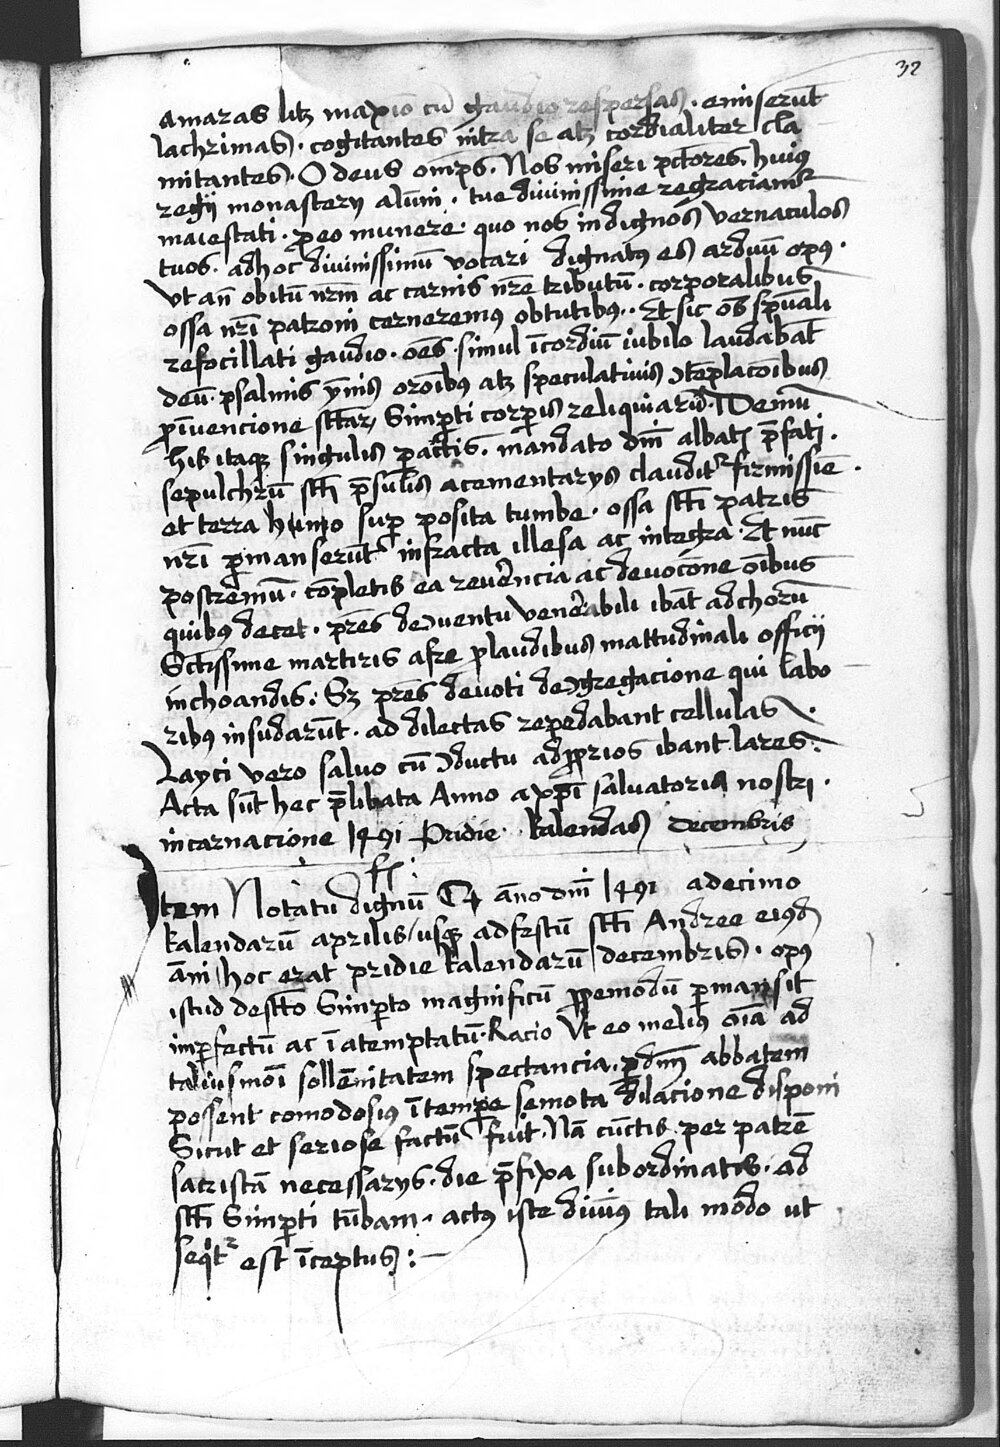 32
amaras licz maxio cū gaudio respersas. emiserūt
lachrimas. cogitantes īntra se atz cordialiter cla
mitantes. O deus om̄ps. Nos miseri pctores. huiꝰ
regij monastery alūni. tue diuinissime regraciamr
maiestati. ꝓ eo munere. quo nos indignos vernaculos
tuos. adhoc diuinissimū vocari dignatꝰ es arduū opꝰ.
vt an̄ obitū nrm̄ ac carnis nr̄e tributū. corporalibus
ossa nrī patroni cerneremꝰ obtutibꝰ. Et sic om̄s sp̄uali
refocillati gaudio. oēs simul ī cordiū iubilo laudabāt
deū. psalmis ȳnis or̄oībꝰ atz speculatiuis ɔtēplacōibus
ꝓ īuencione sctār, Simp̱ti corp̱is reliquiarū. Demū
his itaqꝫ singulis p̱actis. mandato dn̄i abbatis p̄fati.
sepulchrū sctī p̄sulis a cementarys clauditr firmissīe.
et terra humo sup̱ posita tumbe. ossa sctī patris
nrī p̱manserūt infracta illesa ac integra. Et nūc
postremū. cōpletis ea reuērencia ac deuocōne oībus
quibꝰ decet. prēs de ɔuentu venērabili ibāt ad chorū
Sctissime martiris afre plaudibus mattudinali officij
inchoandis: Sꝫ prēs deuoti de ɔgregacione qui labo
ribꝰ insudarūt. ad dilectas repedabant cellulas.
Layci vero saluo cū ɔductu ad ꝓprios ibant lares.
Acta sūt hec p̄libata Anno a xp̄i saluatoris nostri.
incarnacione 1491 Pridie kalendas decembris
Item Notatu dignū anō dn̄i 1491 a decimo
kalendarū aprilis / usqꝫ ad festū sctī Andree eiꝰd
an̄i / hoc erat pridie kalendarū decembris. opꝰ
istud de sctō Simp̱to magnificū ꝓpemodū p̱mansit
imp̱fectū ac ītatemptatū. Racio Vt eo meliꝰ oīa ad
talius mōi sollēnitatem spectancia. ꝑ dn̄m abbatem
possent comodosiꝰ ī tempe semota dilacione disponi
Sicut et seriose factū fuit. Nā cūctis per patrē
sacristā necessarys. die p̄fixa subordinatis. ad
sctī Simp̱ti tūbam. actꝰ iste diuīꝰ tali modo ut
seqitr est īceptus: